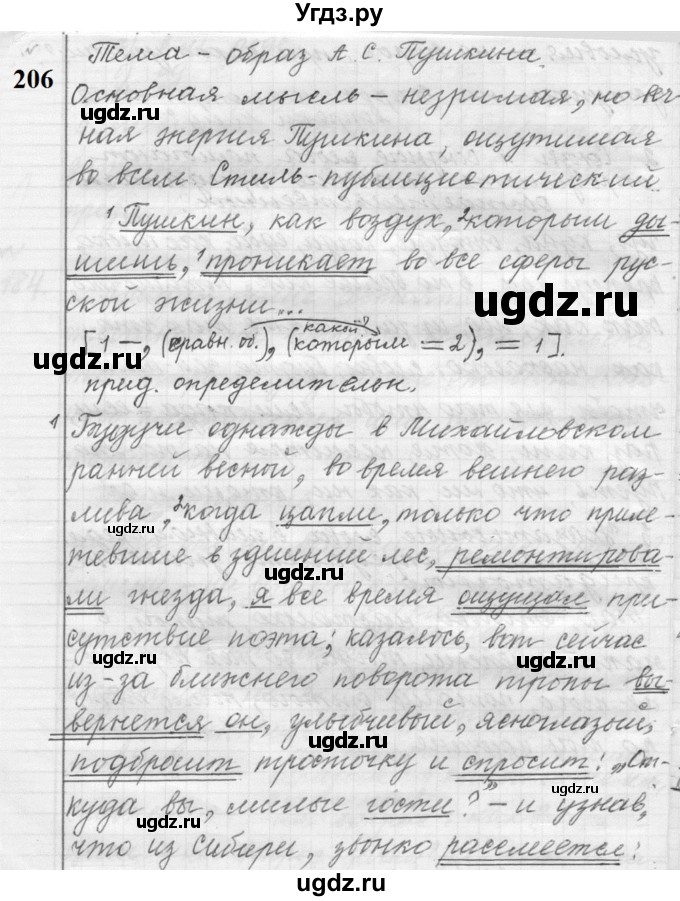 Угдз.ру
206
Тема – образ А. С. Пушкина.
Основная мысль – незримая, но веч-
ная энергия Пушкина, ощутимая
во всем. Стиль – публицистический.
¹ Пушкин, как воздух, ²которым ды-
шишь, ¹проникает во все сферы рус-
ской жизни...
ugdz.ru
какой?
[1 –, (сравн. об.), (которым = 2), = 1].
ugdz.ru
прид. определительн.
¹ Будучи однажды в Михайловском
ранней весной, во время вешнего раз-
лива, ²когда цапли, только что приле-
ugdz.ru
тевшие в здешний лес, ремонтирова-
ugdz.ru
ли гнезда, я все время ощущал при-
ugdz.ru
ugdz.ru
сутствие поэта; казалось, вот сейчас
из-за ближнего поворота тропы вы-
ugdz.ru
вернется он, улыбчивый, ясноглазый,
ugdz.ru
подбросит тросточку и спросит: „От-
куда вы, милые гости?" – и узнав,
ugdz.ru
ugdz.ru
что из Сибири, звонко рассмеется:
ugdz.ru